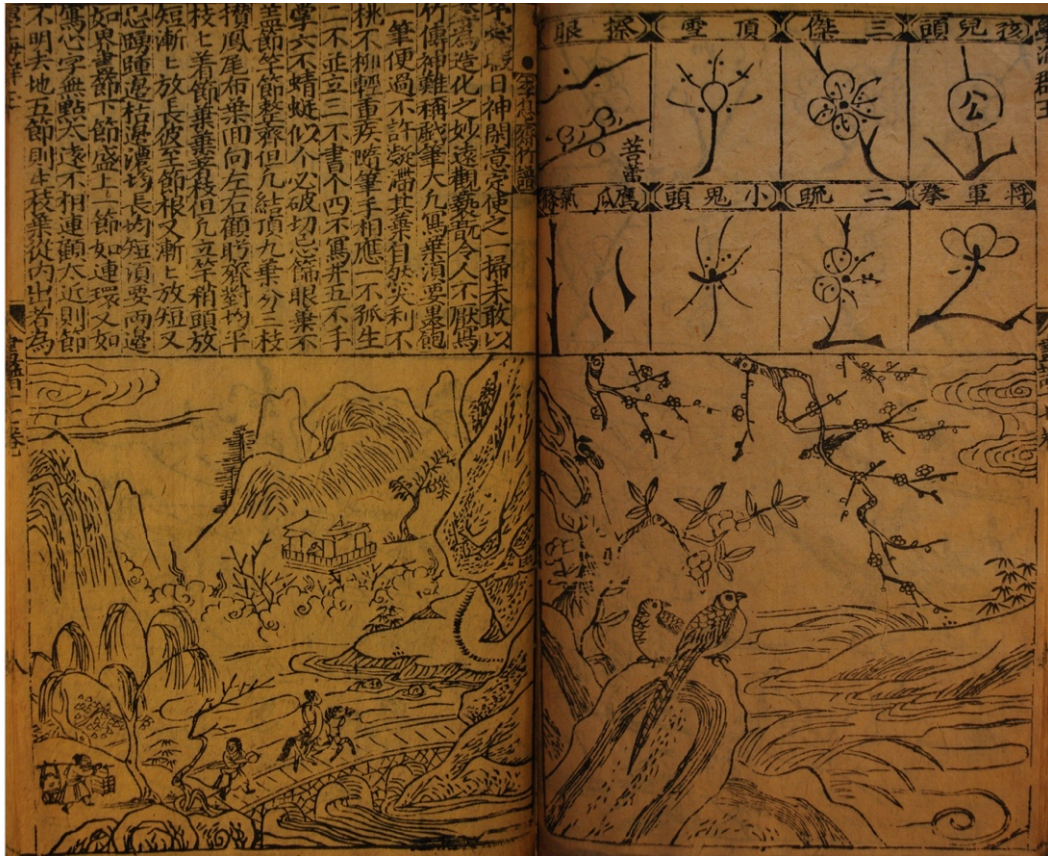 學海群玉
孩兒頭
三傑
頂雪
擦眼
公
菩蕾
將軍拳
二
小鬼頭
鷹爪
氣條
李息齋竹譜
日神閒意定使之一掃未敢以
為造化之妙遠觀翫令人不厭寫
竹傳神難稱戲筆大凡寫葉須要墨飽
一筆便過不許凝滯其葉自然尖利不
桃不柳輕重疾筆手相應一不孤生
二不並立三不書个四不寫井五不手
掌六不蜻蜓似个必破切忌眼葉不
盖節竿節整齊但凡結頂九葉分三枝
攢鳳尾布葉回向左右顧盻齊對均平
枝上着節葉葉着枝但凡立竿稍頭放
短漸上放長彼至節根又漸上放短又
忌邊枯邊濃均長均短須要兩邊
如界畫節下一節盛上一節如連環又如
寫心字無點太遠不相連顧太近則節
不明夫地五節則生枝葉從内出者為